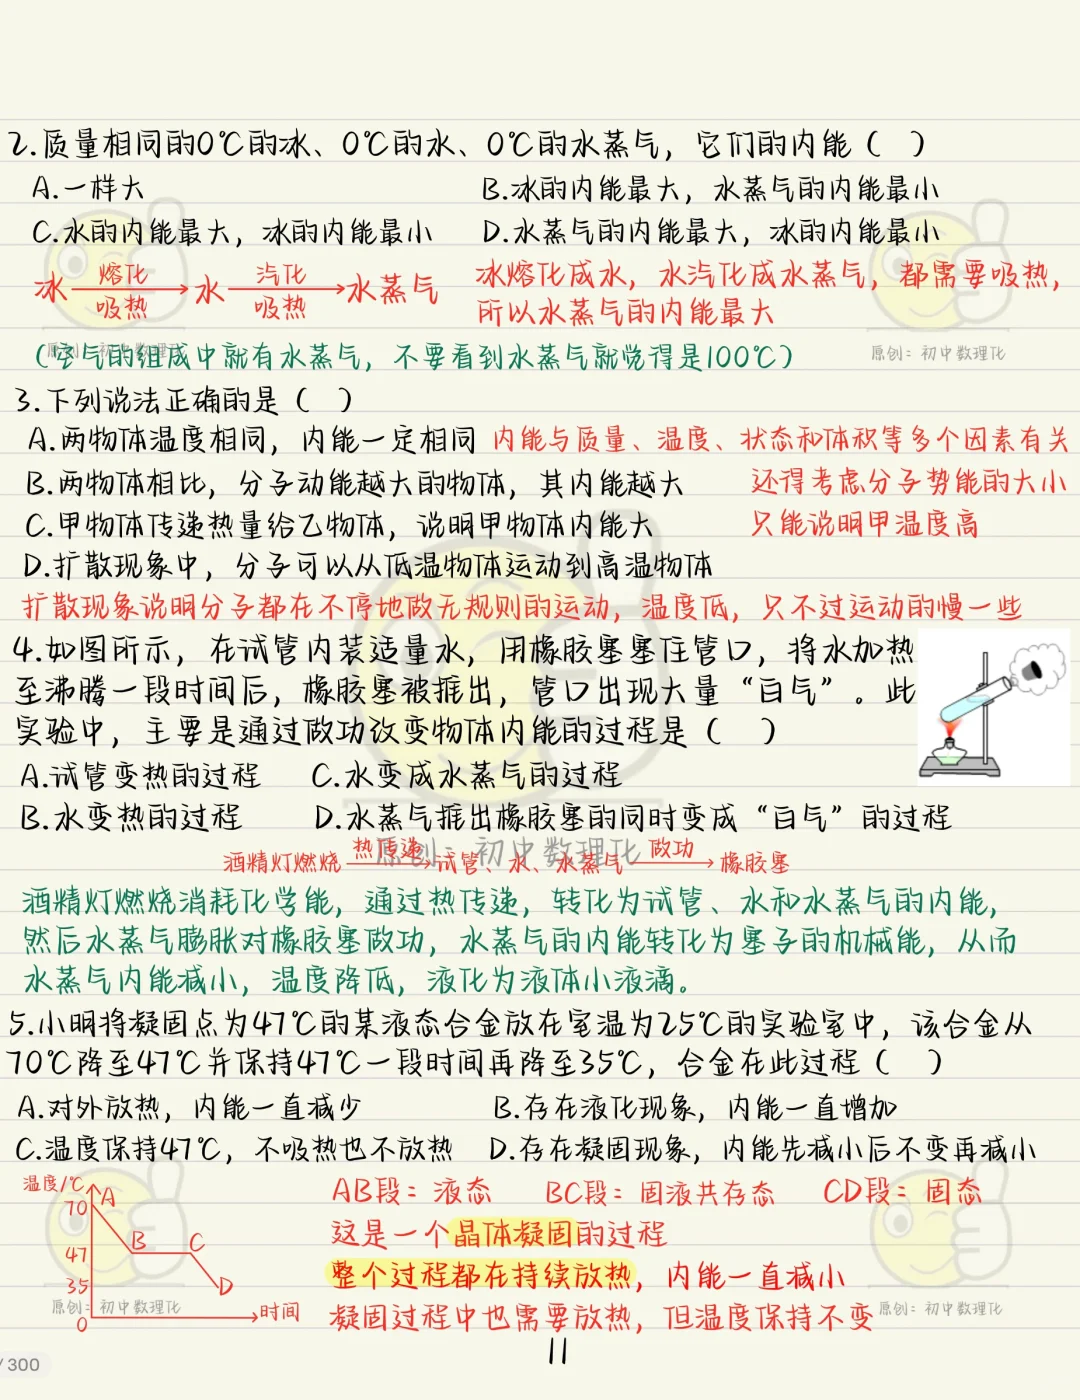 2.质量相同的0℃的冰、0℃的水、0℃的水蒸气，它们的内能（ ）
A.一样大 B.冰的内能最大，水蒸气的内能最小
C.水的内能最大，冰的内能最小 D.水蒸气的内能最大，冰的内能最小
熔化 汽化
冰 水 水蒸气
吸热 吸热
冰熔化成水，水汽化成水蒸气，都需要吸热，
所以水蒸气的内能最大
原创：初中数理化
（空气的组成中就有水蒸气，不要看到水蒸气就觉得是100℃）
原创：初中数理化
3.下列说法正确的是（ ）
A.两物体温度相同，内能一定相同 内能与质量、温度、状态和体积等多个因素有关
B.两物体相比，分子动能越大的物体，其内能越大 还得考虑分子势能的大小
C.甲物体传递热量给乙物体，说明甲物体内能大 只能说明甲温度高
D.扩散现象中，分子可以从低温物体运动到高温物体
扩散现象说明分子都在不停地做无规则的运动，温度低，只不过运动的慢一些
4.如图所示，在试管内装适量水，用橡胶塞塞住管口，将水加热
至沸腾一段时间后，橡胶塞被推出，管口出现大量“白气”。此
实验中，主要是通过做功改变物体内能的过程是（ ）
A.试管变热的过程 C.水变成水蒸气的过程
B.水变热的过程 D.水蒸气推出橡胶塞的同时变成“白气”的过程
原创：初中数理化
酒精灯燃烧 热传递 试管、水、水蒸气 做功 橡胶塞
酒精灯燃烧消耗化学能，通过热传递，转化为试管、水和水蒸气的内能，
然后水蒸气膨胀对橡胶塞做功，水蒸气的内能转化为塞子的机械能，从而
水蒸气内能减小，温度降低，液化为液体小液滴。
5.小明将凝固点为47℃的某液态合金放在室温为25℃的实验室中，该合金从
70℃降至47℃并保持47℃一段时间再降至35℃，合金在此过程（ ）
A.对外放热，内能一直减少 B.存在液化现象，内能一直增加
C.温度保持47℃，不吸热也不放热 D.存在凝固现象，内能先减小后不变再减小
温度/℃
70 A
B C
47
35 D
0 时间
原创：初中数理化
AB段：液态 BC段：固液共存态 CD段：固态
这是一个晶体凝固的过程
整个过程都在持续放热，内能一直减小
凝固过程中也需要放热，但温度保持不变
原创：初中数理化
11
/300